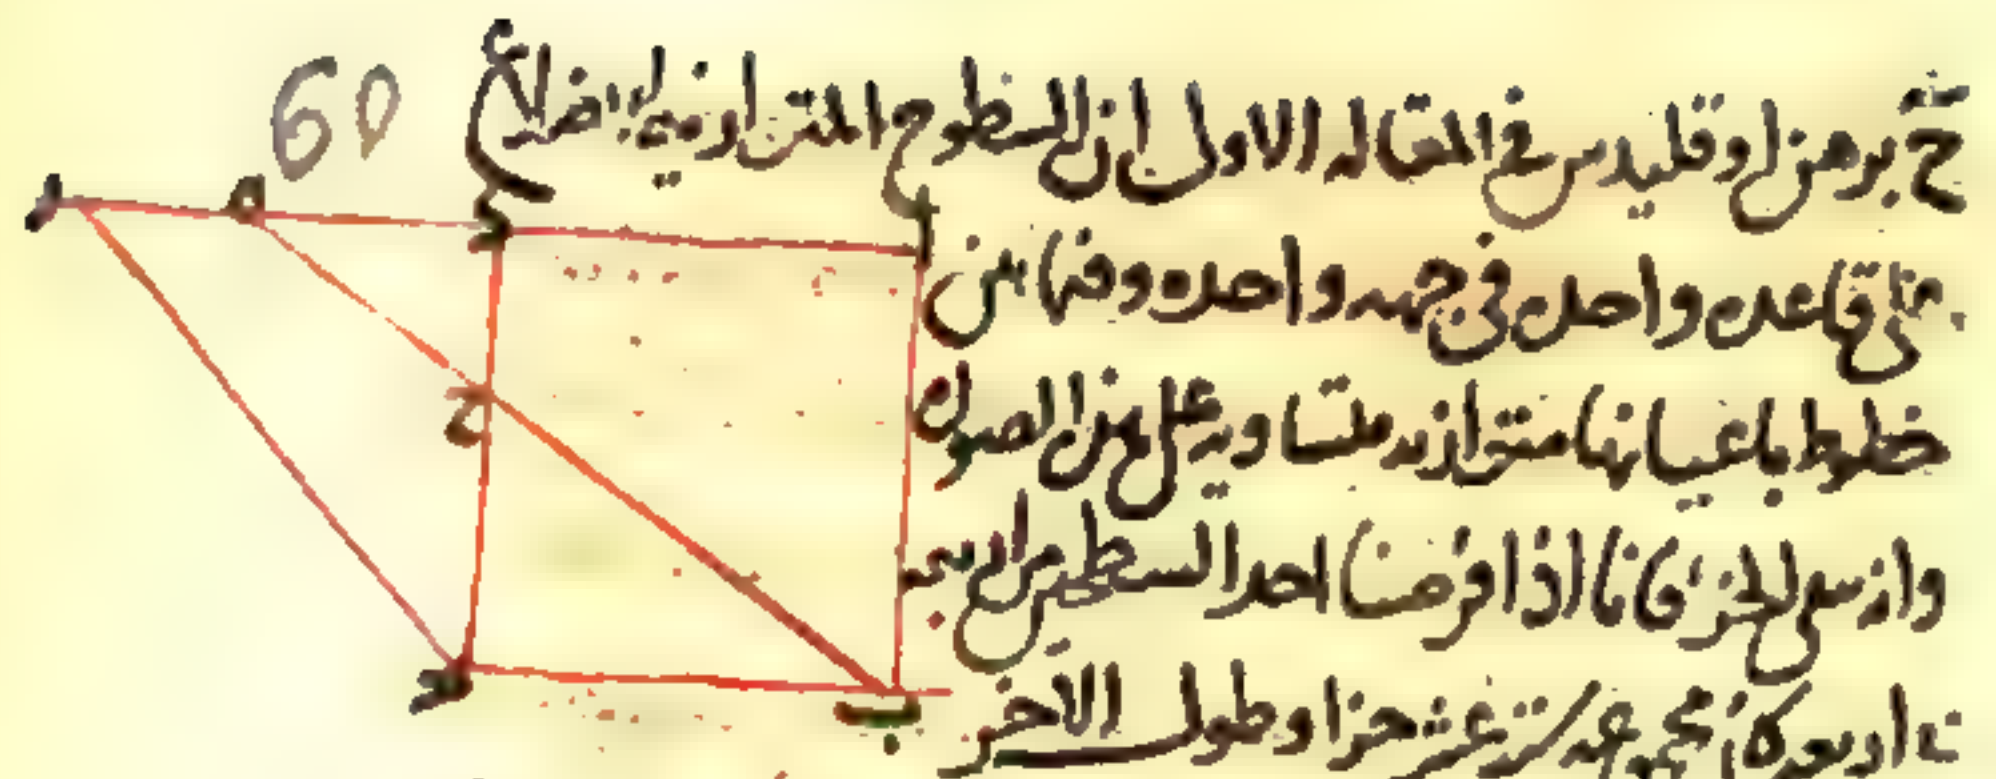 برهن اوقليدس في المقاله الاولي ان السطوح المتوازيه الاضلاع
60
علي قاعده واحده في جهه واحده وفيما بين
خطوط باعيانها متوازيه متساويه علي هذه الصوره
فانا اذا فرضنا احد السطحين
اربعه كان مجموعه سته عشر جزا وطول الاخر
ا
د
ه
ر
ح
ب
ج